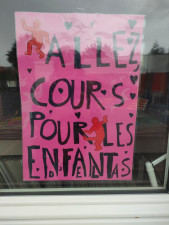 ALLEZ
COURS
POUR LES
ENFANTAS